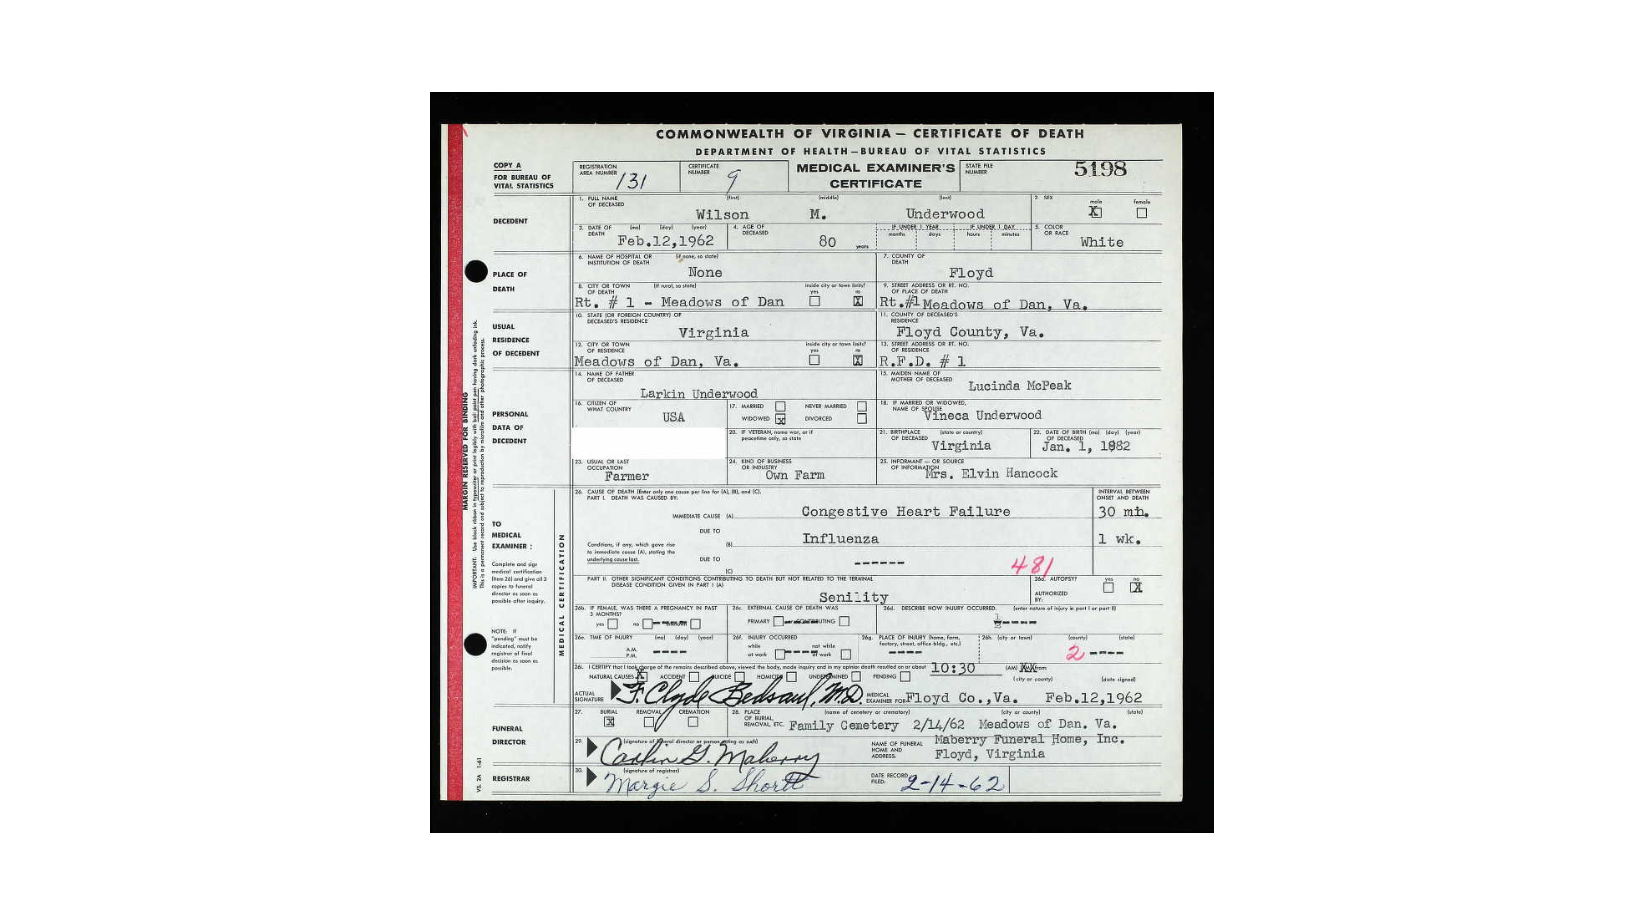 COMMONWEALTH OF VIRGINIA — CERTIFICATE OF DEATH
DEPARTMENT OF HEALTH—BUREAU OF VITAL STATISTICS
COPY A
FOR BUREAU OF
VITAL STATISTICS
REGISTRATION
AREA NUMBER 131
CERTIFICATE
NUMBER 9
MEDICAL EXAMINER'S
CERTIFICATE
STATE FILE
NUMBER 5198
DECEDENT
1. FULL NAME (first) (middle) (last)
OF DECEASED
Wilson M. Underwood
2. SEX male female
X
3. DATE OF (mo) (day) (year)
DEATH Feb.12,1962
4. AGE OF
DECEASED 80 years
IF UNDER 1 YEAR IF UNDER 1 DAY
months days hours minutes
5. COLOR
OR RACE White
PLACE OF
DEATH
6. NAME OF HOSPITAL OR (if none, so state)
INSTITUTION OF DEATH
None
7. COUNTY OF
DEATH
Floyd
8. CITY OR TOWN (if rural, so state) inside city or town limits?
OF DEATH yes no
Rt. # 1 - Meadows of Dan X
9. STREET ADDRESS OR RT. NO.
OF PLACE OF DEATH
Rt.#1 Meadows of Dan, Va.
USUAL
RESIDENCE
OF DECEDENT
10. STATE (OR FOREIGN COUNTRY) OF
DECEASED'S RESIDENCE
Virginia
11. COUNTY OF DECEASED'S
RESIDENCE
Floyd County, Va.
12. CITY OR TOWN inside city or town limits?
OF RESIDENCE yes no
Meadows of Dan, Va. X
13. STREET ADDRESS OR RT. NO.
OF RESIDENCE
R.F.D. # 1
PERSONAL
DATA OF
DECEDENT
14. NAME OF FATHER
OF DECEASED
Larkin Underwood
15. MAIDEN NAME OF
MOTHER OF DECEASED Lucinda McPeak
16. CITIZEN OF
WHAT COUNTRY
USA
17. MARRIED NEVER MARRIED
WIDOWED X DIVORCED
18. IF MARRIED OR WIDOWED,
NAME OF SPOUSE
Vineca Underwood
20. IF VETERAN, name war, or if
peacetime only, so state
21. BIRTHPLACE (state or country)
OF DECEASED
Virginia
22. DATE OF BIRTH (mo) (day) (year)
OF DECEASED
Jan. 1, 1882
23. USUAL OR LAST
OCCUPATION
Farmer
24. KIND OF BUSINESS
OR INDUSTRY
Own Farm
25. INFORMANT — OR SOURCE
OF INFORMATION
Mrs. Elvin Hancock
MARGIN RESERVED FOR BINDING
TO
MEDICAL
EXAMINER:
Complete and sign
medical certification
(item 26) and give all 3
copies to funeral
director as soon as
possible after inquiry.
NOTE: If
"pending" must be
indicated, notify
registrar of final
decision as soon as
possible.
MEDICAL CERTIFICATION
26. CAUSE OF DEATH (Enter only one cause per line for (A), (B), and (C).
PART I. DEATH WAS CAUSED BY:
INTERVAL BETWEEN
ONSET AND DEATH
IMMEDIATE CAUSE (A) Congestive Heart Failure 30 mn.
DUE TO
(B) Influenza 1 wk.
Conditions, if any, which gave rise
to immediate cause (A), stating the
underlying cause last.
DUE TO
(C) ------
481
PART II. OTHER SIGNIFICANT CONDITIONS CONTRIBUTING TO DEATH BUT NOT RELATED TO THE TERMINAL
DISEASE CONDITION GIVEN IN PART I (A)
Senility
26a. AUTOPSY? yes no
X
AUTHORIZED
BY:
26b. IF FEMALE, WAS THERE A PREGNANCY IN PAST
3 MONTHS?
yes no
26c. EXTERNAL CAUSE OF DEATH WAS
PRIMARY CONTRIBUTING
26d. DESCRIBE HOW INJURY OCCURRED. (enter nature of injury in part I or part II)
-----
26e. TIME OF INJURY (mo) (day) (year)
A.M.
P.M. ----
26f. INJURY OCCURRED
while not while
at work at work
26g. PLACE OF INJURY (home, farm,
factory, street, office bldg., etc.)
----
26h. (city or town) (county) (state)
2 ----
26i. I CERTIFY that I took charge of the remains described above, viewed the body, made inquiry and in my opinion death resulted on or about 10:30 (AM)
NATURAL CAUSES X ACCIDENT SUICIDE HOMICIDE UNDETERMINED PENDING (city or county) (date signed)
ACTUAL
SIGNATURE F. Clyde Bedsaul, M.D. MEDICAL
EXAMINER FOR Floyd Co.,Va. Feb.12,1962
FUNERAL
DIRECTOR
27. BURIAL REMOVAL CREMATION
X
28. PLACE (name of cemetery or crematory) (city or county) (state)
OF BURIAL,
REMOVAL, ETC. Family Cemetery 2/14/62 Meadows of Dan. Va.
29. (signature of funeral director or person acting as such)
Carlin G. Maberry
NAME OF FUNERAL
HOME AND
ADDRESS:
Maberry Funeral Home, Inc.
Floyd, Virginia
REGISTRAR
30. (signature of registrar)
Margie S. Shortt
DATE RECORD
FILED: 2-14-62